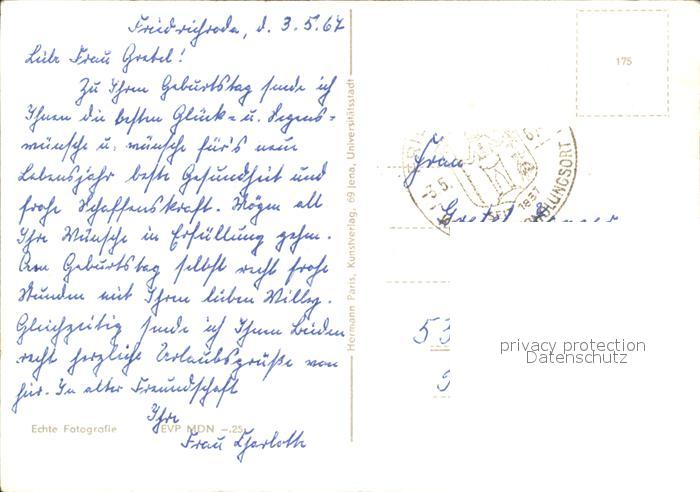 Friedrichroda, d. 3.5.67
Liebe Frau Gretel!
Zu Ihrem Geburtstag sende ich
Ihnen die besten Glück- u. Segens-
wünsche u. wünsche für's neue
Lebensjahr beste Gesundheit und
frohe Schaffenskraft. Mögen all
Ihre Wünsche in Erfüllung gehen.
Am Geburtstag selbst recht frohe
Stunden mit Ihrem lieben Willy.
Gleichzeitig sende ich Ihnen Beiden
recht herzliche Urlaubsgrüße von
hier. In alter Freundschaft
Ihre
Frau Charlotte
Echte Fotografie EVP MDN -.25
Hermann Paris, Kunstverlag, 69 Jena, Universitätsstadt
175
-3.5.
1837
HOLUNGSORT
Frau
Gretel
53
privacy protection
Datenschutz